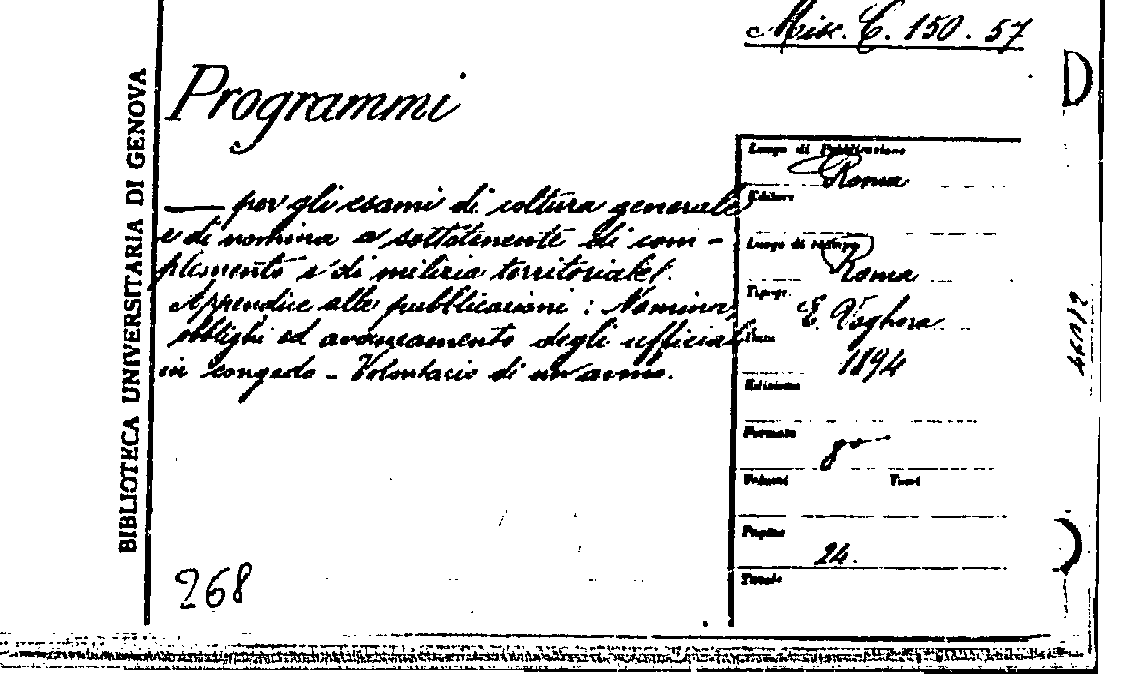 Misc. C. 150. 57
BIBLIOTECA UNIVERSITARIA DI GENOVA
Programmi
— per gli esami di coltura generale
e di nomina a sottotenente di com-
plemento e di milizia territoriale.
Appendice alle pubblicazioni: Nomina,
obblighi ed avanzamento degli ufficiali
in congedo - Volontario di un anno.
268
Luogo di Pubblicazione
Roma
Editore
Luogo di stampa
Roma
Tipogr.
E. Voghera
Data
1894
Edizione
Formato
8°
Volumi Tomi
Pagine
24.
Tavole